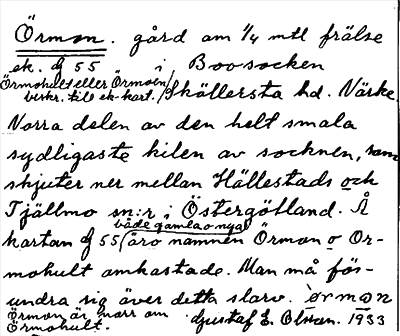 Örmon. gård om 1/4 mtl frälse
ek. bl 55 i Boo socken
Örmohult eller Örmoen / Skällersta hd. Närke
beskr. till ek. kart.
Norra delen av den helt smala
sydligaste kilen av socknen, som
skjuter ner mellan Hällestads och
Tjällmo sn:r i Östergötland. Å
både gamla o nya
kartan bl 55 (äro namnen Örmon o Or-
mohult omkastade. Man må för-
undra sig över detta slarv. örmon
Örmon är norr om
Örmohult. Gustaf E. Olsson. 1933